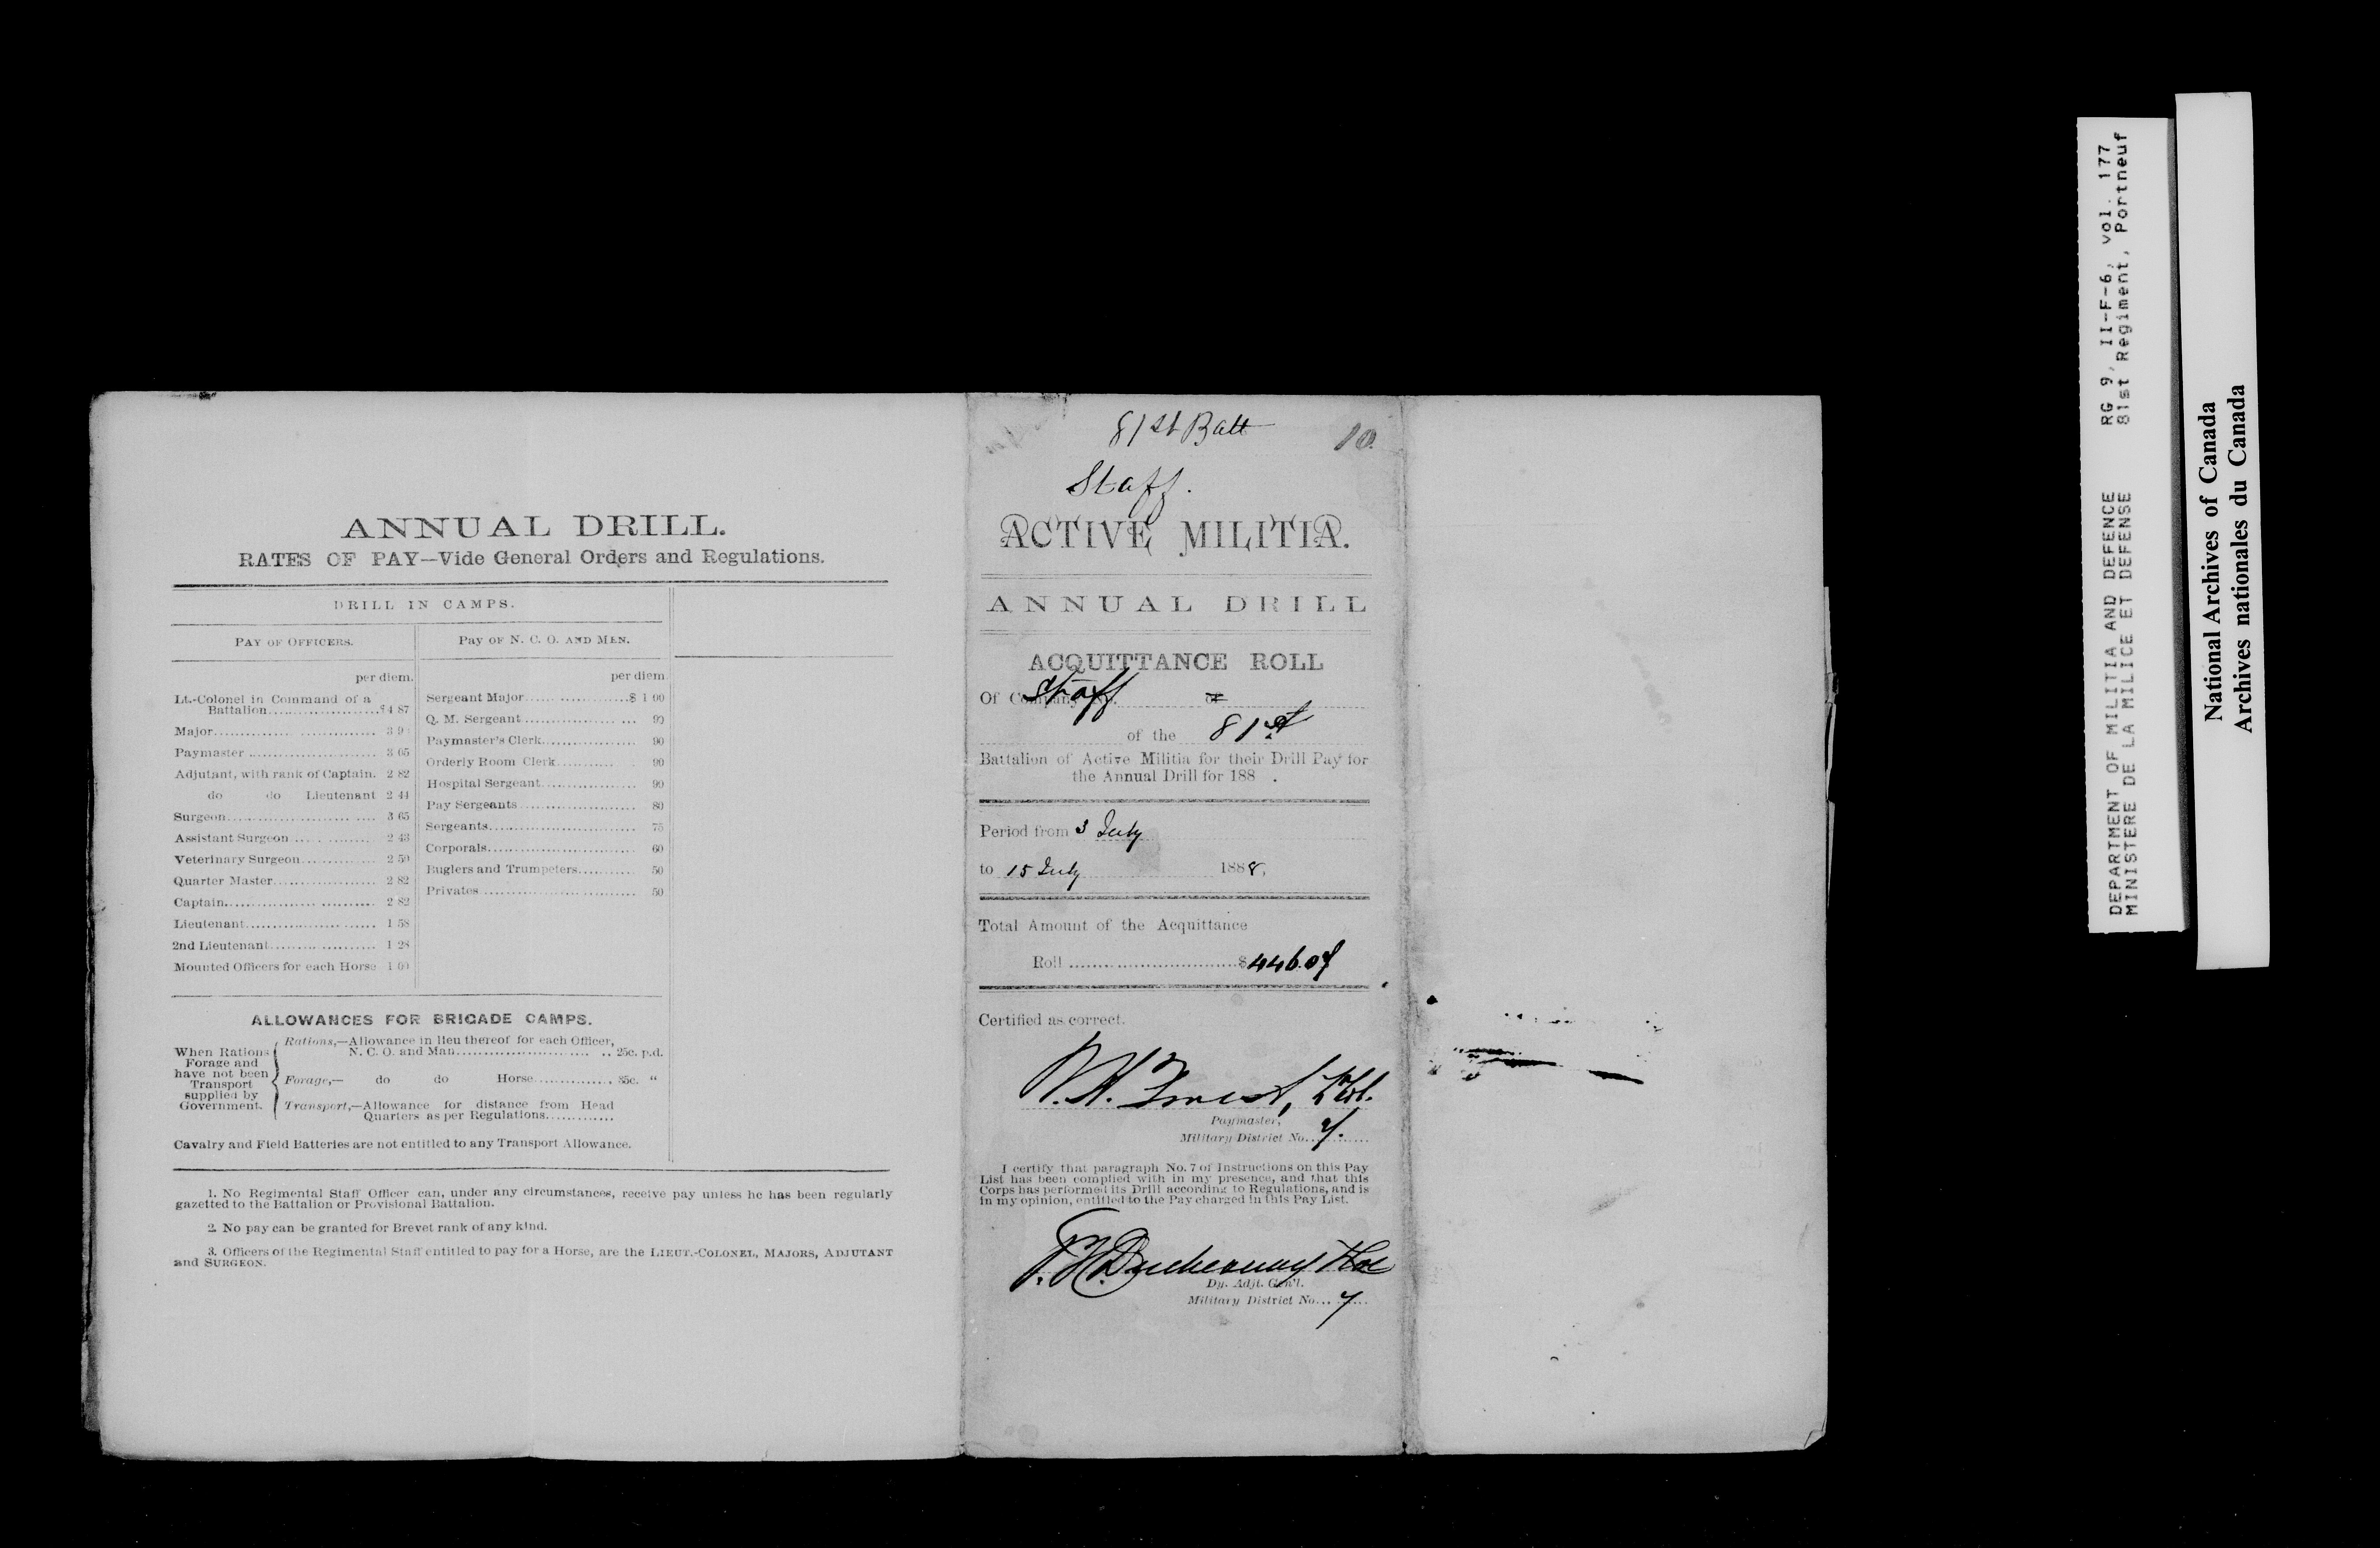 ANNUAL DRILL.
RATES OF PAY—Vide General Orders and Regulations.
DRILL IN CAMPS.
PAY OF OFFICERS.
per diem.
Lt.-Colonel in Command of a
Battalion.....................$4 87
Major............................ 3 9
Paymaster ........................ 3 05
Adjutant, with rank of Captain. 2 82
do do Lieutenant 2 44
Surgeon............................ 3 65
Assistant Surgeon ................ 2 43
Veterinary Surgeon.............. 2 50
Quarter Master.................. 2 82
Captain............................ 2 82
Lieutenant........................ 1 58
2nd Lieutenant................... 1 28
Mounted Officers for each Horse 1 00
PAY OF N. C. O. AND MEN.
per diem
Sergeant Major....................$ 1 00
Q. M. Sergeant..................... 90
Paymaster's Clerk................. 90
Orderly Room Clerk............. 90
Hospital Sergeant................. 90
Pay Sergeants ...................... 80
Sergeants............................ 75
Corporals............................ 60
Buglers and Trumpeters.......... 50
Privates ............................ 50
ALLOWANCES FOR BRIGADE CAMPS.
When Rations
Forage and
have not been
Transport
supplied by
Government.
Rations,—Allowance in lieu thereof for each Officer,
N. C. O. and Man............................ 25c. p.d.
Forage,— do do Horse.............. 35c. "
Transport,—Allowance for distance from Head
Quarters as per Regulations............
Cavalry and Field Batteries are not entitled to any Transport Allowance.
1. No Regimental Staff Officer can, under any circumstances, receive pay unless he has been regularly
gazetted to the Battalion or Provisional Battalion.
2. No pay can be granted for Brevet rank of any kind.
3. Officers of the Regimental Staff entitled to pay for a Horse, are the LIEUT.-COLONEL, MAJORS, ADJUTANT
and SURGEON.
81st Batt 10.
Staff.
ACTIVE MILITIA.
ANNUAL DRILL
ACQUITTANCE ROLL
Of Company No. Staff of
of the 81st
Battalion of Active Militia for their Drill Pay for
the Annual Drill for 188 .
Period from 3 July
to 15 July 1888,
Total Amount of the Acquittance
Roll ..............................$446.07
Certified as correct.
Paymaster,
Military District No. 7.
I certify that paragraph No. 7 of Instructions on this Pay
List has been complied with in my presence, and that this
Corps has performed its Drill according to Regulations, and is
in my opinion, entitled to the Pay charged in this Pay List.
Duchesnay
Dy. Adjt. Gen'l.
Military District No. 7
DEPARTMENT OF MILITIA AND DEFENCE RG 9, II-F-6, vol. 177
MINISTERE DE LA MILICE ET DEFENSE 81st Regiment, Portneuf
National Archives of Canada
Archives nationales du Canada